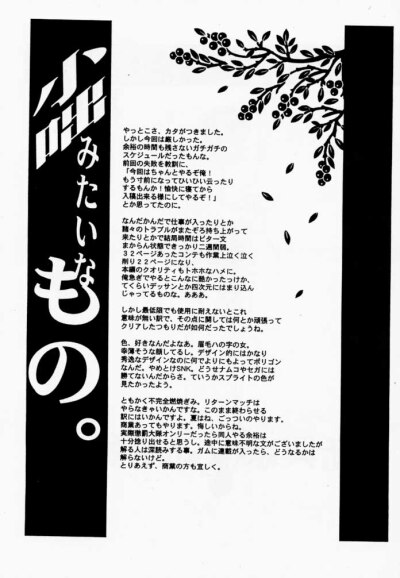 小咄みたいなもの。
やっとこさ、カタがつきました。
しかし今回は厳しかった。
余裕の時間も残さないガチガチの
スケジュールだったもんな。
前回の失敗を教訓に、
「今回はちゃんとやるぞ俺！
もう寸前になってひいひい云ったり
するもんか！愉快に寝てから
入稿出来る様にしてやるぞ！」
とか思ってたのに。
なんだかんだで仕事が入ったりとか
諸々のトラブルがまたぞろ持ち上がって
来たりとかで結局時間はビター文
まからん状態できっかり二週間弱。
３２ページあったコンテも作業上泣く泣く
削り２２ページになり、
本編のクオリティもトホホなハメに。
俺急ぎでやるとこんなに酷かったっけか、
てくらいデッサンとか四次元にはまり込ん
じゃってるものな。あああ。
しかし最低限でも使用に耐えないとこれ
意味が無い訳で、その点に関しては何とか頑張って
クリアしたつもりだが如何だったでしょうね。
色、好きなんだよなあ。眉毛ハの字の女。
幸薄そうな顔してるし。デザイン的にはかなり
秀逸なデザインなのに何でよりにもよってポリゴン
なんだ。やめとけSNK。どうせナムコやセガには
勝てないんだからさ。ていうかスプライトの色が
見たかったよう。
ともかく不完全燃焼ぎみ。リターンマッチは
やらなきゃいかんですな。このまま終わらせる
訳にはいかんですよ。夏はね、ごっついのやります。
商業あってもやります。悔しいからね。
実際懲罰大隊オンリーだったら同人やる余裕は
十分捻り出せると思うし。途中に意味不明な文がございましたが
解る人は深読みする事。ガムに連載が入ったら、どうなるかは
解らないけど。
とりあえず、商業の方も宜しく。